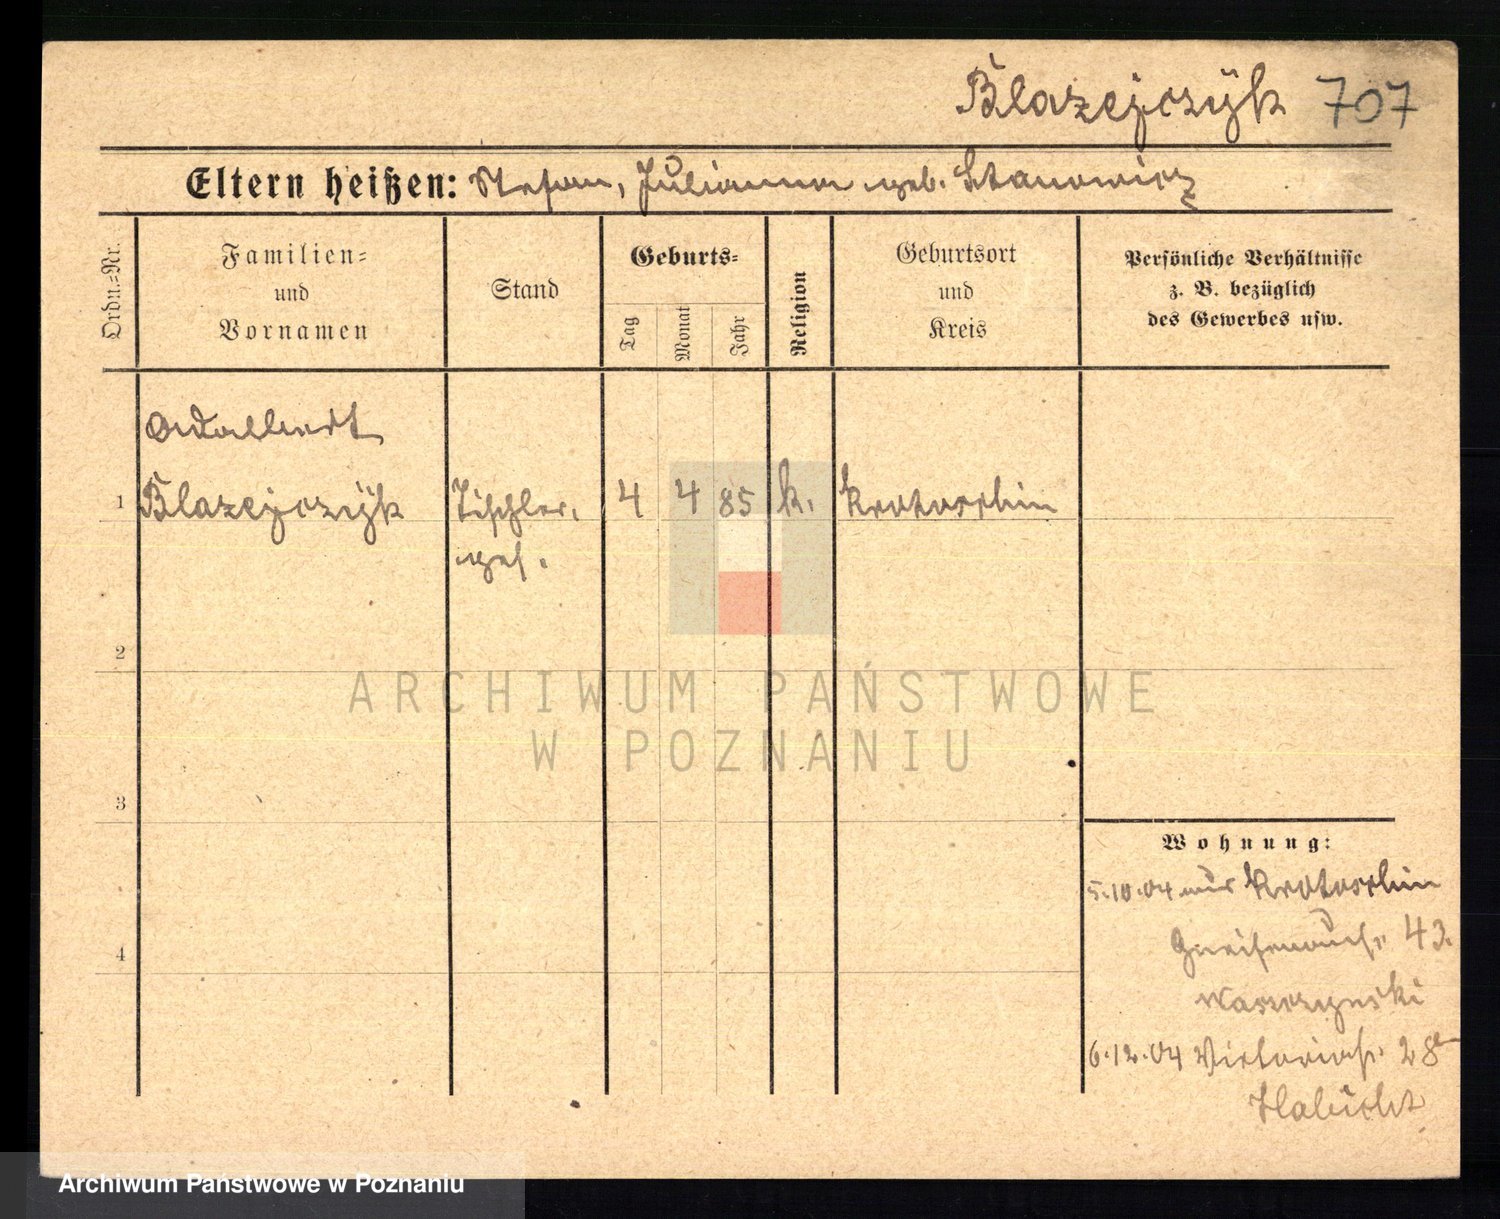 Blazejczÿk 707
Eltern heißen: Stefan, Julianna geb. Stanowicz
Ordn.=Nr.
Familien=
und
Vornamen
Stand
Geburts=
Tag
Monat
Jahr
Religion
Geburtsort
und
Kreis
Persönliche Verhältnisse
z. B. bezüglich
des Gewerbes usw.
Adalbert
1 Blazejczÿk Tischler. 4 4 85 k. Krotoschin
ges.
2
ARCHIWUM PAŃSTWOWE
W POZNANIU
3
Wohnung:
5.10.04 aus Krotoschin
Gneisenaustr. 43.
4
Waszczynski
6.12.04 Victoriastr. 28
Archiwum Państwowe w Poznaniu